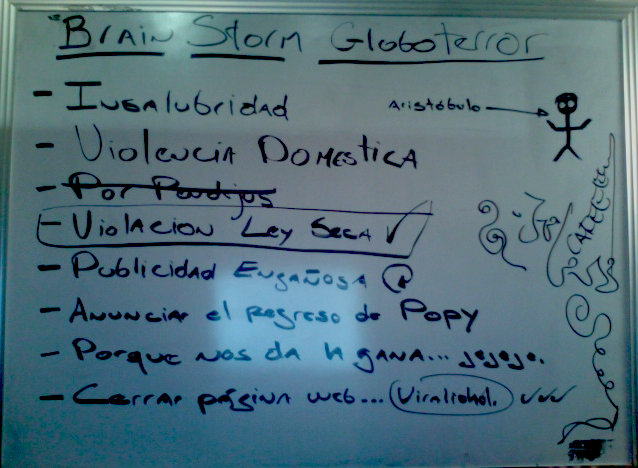 BRAIN STORM GLOBOTERROR
- INSALUBRIDAD
Aristóbulo
- VIOLENCIA DOMESTICA
- Por Pendejos
- VIOLACION LEY SECA ✓
- PUBLICIDAD ENGAÑOSA
- ANUNCIAR el regreso de POPY
- PORQUE NOS DA LA GANA... jejeje.
- Cerrar página web...